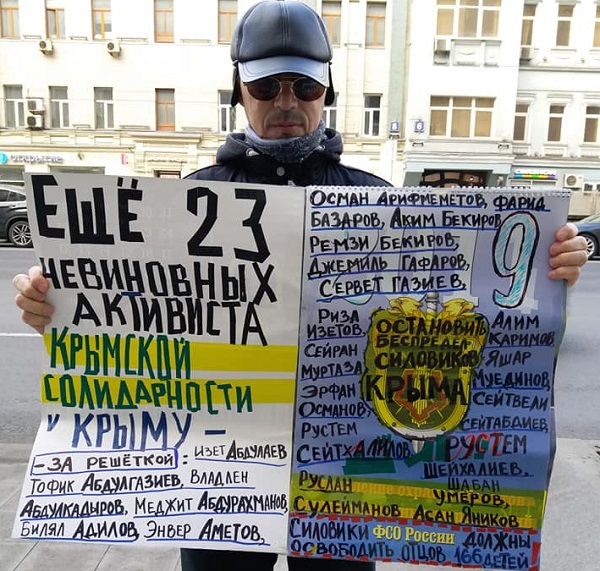 открытие
ЕЩЁ 23
НЕВИНОВНЫХ
АКТИВИСТА
КРЫМСКОЙ
СОЛИДАРНОСТИ
У КРЫМУ –
– ЗА РЕШЁТКОЙ: ИЗЕТ АБДУЛАЕВ
ТОФИК АБДУЛГАЗИЕВ, ВЛАДЛЕН
АБДУЛКАДЫРОВ, МЕДЖИТ АБДУРАХМАНОВ,
БИЛЯЛ АДИЛОВ, ЭНВЕР АМЕТОВ,
ОСМАН АРИФМЕМЕТОВ, ФАРИД
БАЗАРОВ, АКИМ БЕКИРОВ
РЕМЗИ БЕКИРОВ,
ДЖЕМИЛЬ ГАФАРОВ,
СЕРВЕТ ГАЗИЕВ,
9
РИЗА
ИЗЕТОВ,
СЕЙРАН
МУРТАЗА
ЭРФАН
ОСМАНОВ,
РУСТЕМ
СЕЙТХАЛИЛОВ,
ОСТАНОВИТЬ
БЕСПРЕДЕЛ
СИЛОВИКОВ
КРЫМА
АЛИМ
КАРИМОВ
ЯШАР
МУЕДИНОВ,
СЕЙТВЕЛИ
СЕЙТАБДИЕВ,
РУСТЕМ
ШЕЙХАЛИЕВ,
РУСЛАН
ШАБАН
УМЕРОВ,
СУЛЕЙМАНОВ АСАН ЯНИКОВ
СИЛОВИКИ ФСО России ДОЛЖНЫ
ОСВОБОДИТЬ ОТЦОВ 166 ДЕТЕЙ